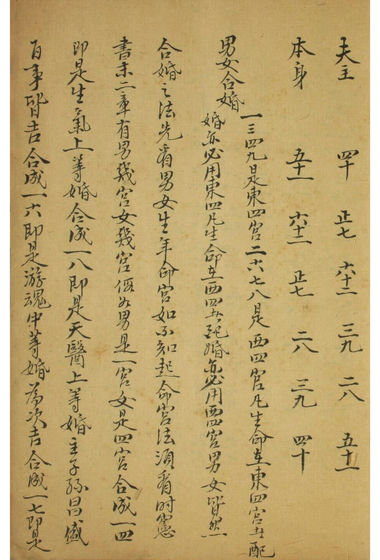 夫主 四十 正七 六十二 三九 二八 五十一
本身 五十一 六十二 正七 二八 三九 四十
男女合婚
一三四九是東四宮二六七八是西四宮凡生命在東四宮者配
婚亦必用東四凡生命在西四者配婚亦必用西四宮男女皆然
合婚之法先看男女生年命宮如不知起命宮法須看時憲
書末二章有男幾宮女幾宮假如男是一宮女是四宮合成一四
即是生氣上等婚合成一八即是天醫上等婚主子孫昌盛
百事皆吉合成一六即是游魂中等婚為次吉合成一七即是